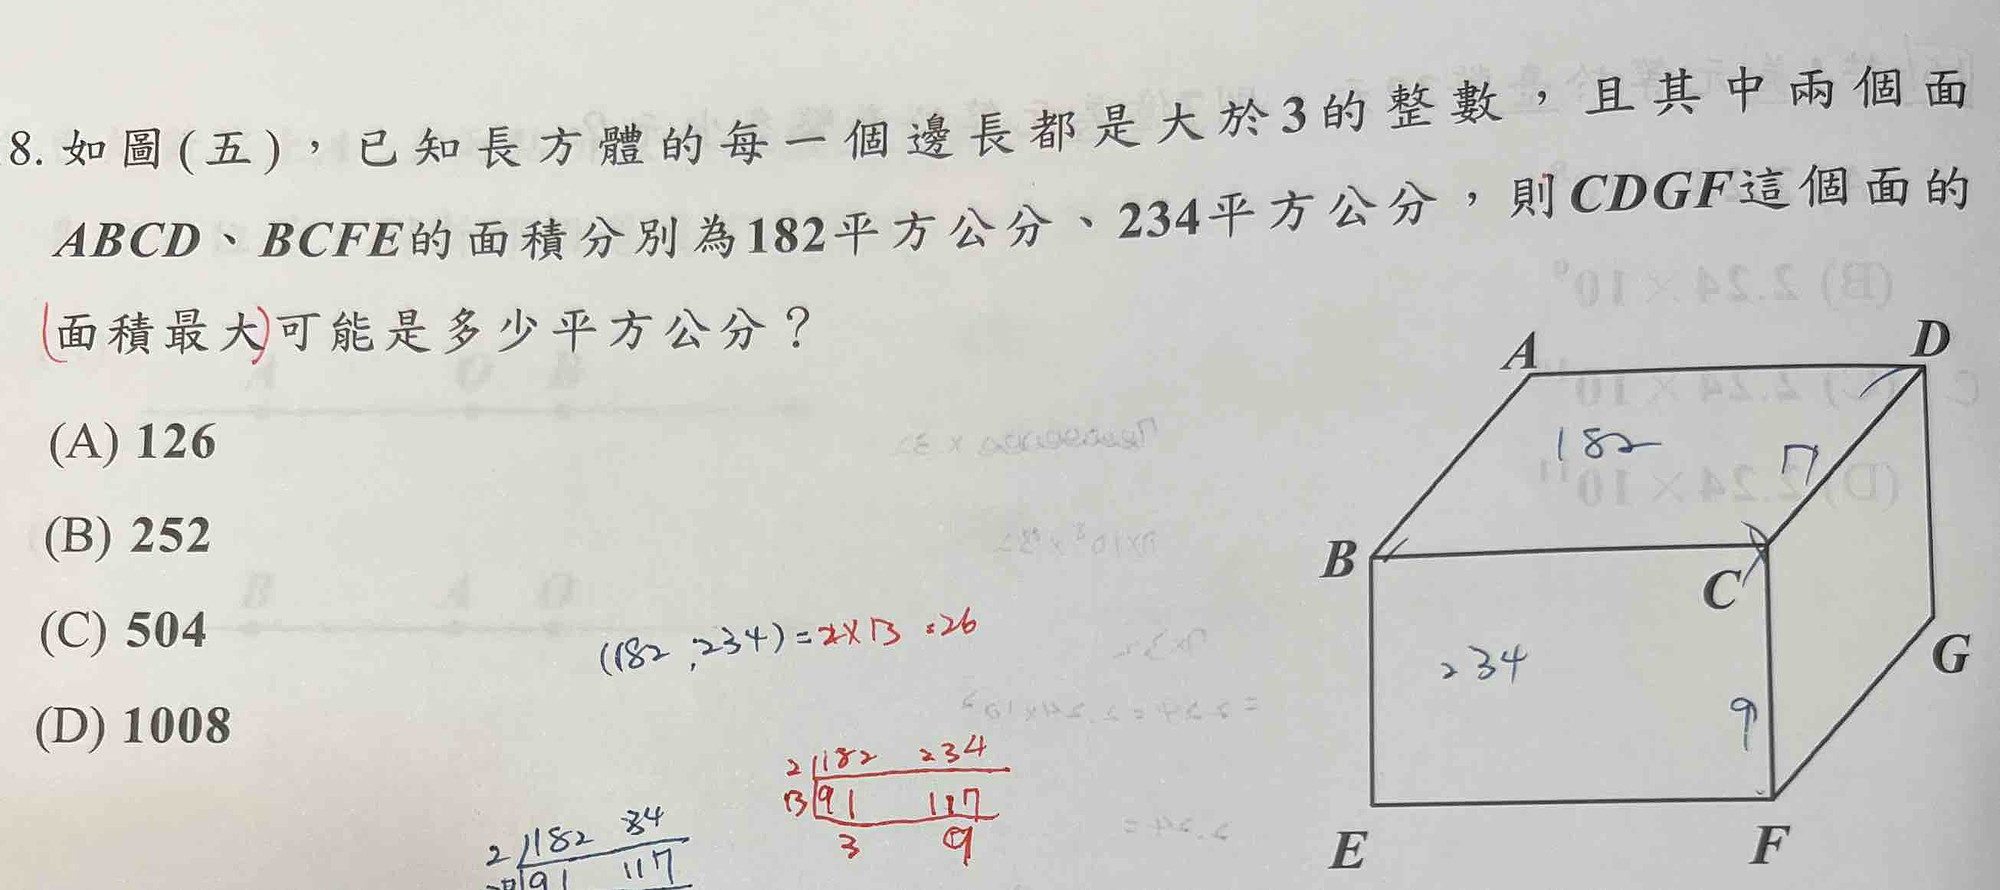 8. 如圖(五)，已知長方體的每一個邊長都是大於3的整數，且其中兩個面
ABCD、BCFE的面積分別為182平方公分、234平方公分，則CDGF這個面的
(面積最大)可能是多少平方公分？
(A) 126
(B) 252
(C) 504
(D) 1008
A
D
182
7
B
C
234
9
G
E
F
(182,234)=2×13=26
2 182 234
13 91 117
3 9
2 182 34
91 117